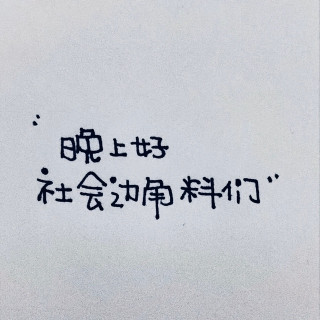 “晚上好
社会边角料们”